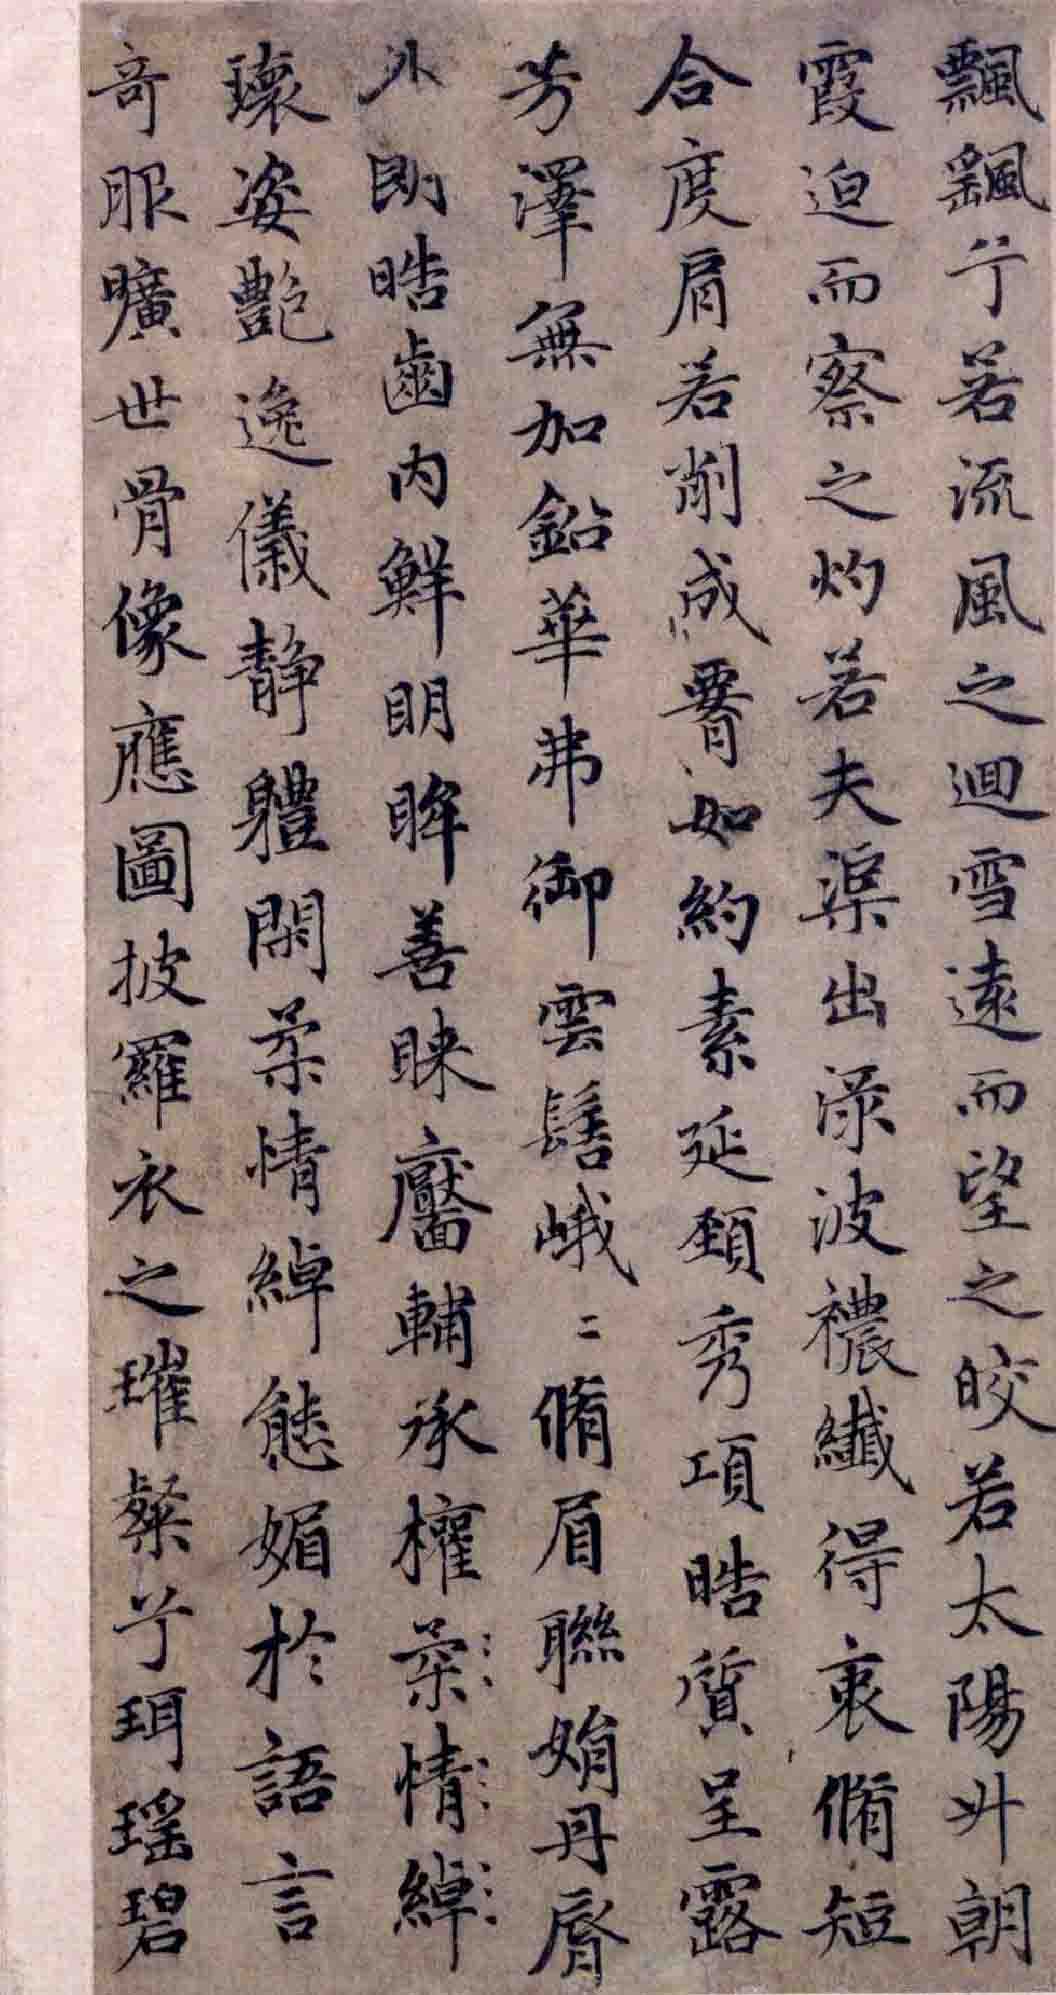 飄飖兮若流風之迴雪遠而望之皎若太陽升朝
霞迫而察之灼若夫渠出淥波襛纖得衷脩短
合度肩若削成䙅如約素延頸秀項皓質呈露
芳澤無加鉛華弗御雲髻峨〻脩眉聯娟丹脣
外朗皓齒内鮮明眸善睞靨輔承權柔情綽
瓌姿艷逸儀静軆閑柔情綽態媚於語言
奇服曠世骨像應圖披羅衣之璀粲兮珥瑶碧